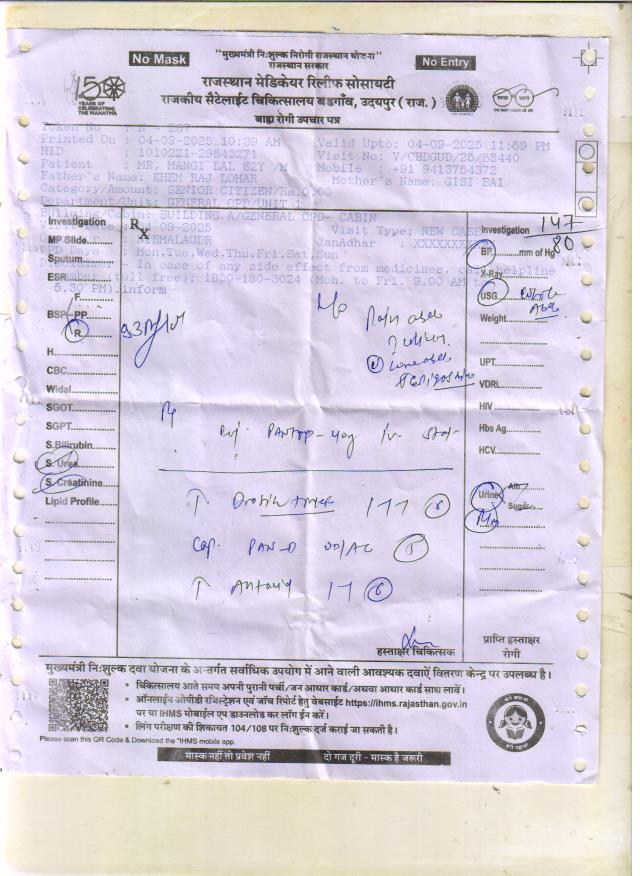 No Mask
"मुख्यमंत्री निःशुल्क निरोगी राजस्थान योजना"
राजस्थान सरकार
No Entry
राजस्थान मेडिकेयर रिलीफ सोसायटी
राजकीय सैटेलाईट चिकित्सालय बडगाँव, उदयपुर ( राज. )
बाह्य रोगी उपचार पत्र
YEARS OF
CELEBRATING
THE MAHATMA
Token No
Printed On : 04-09-2025 10:39 AM Valid Upto: 04-09-2025 11:59 PM
HID : 1010221-29843271 Visit No: V/CBDGUD/25/88440
Patient : MR. MANGI LAL 82Y /M Mobile : +91 9413754372
Father's Name: KHEM RAJ LOHAR Mother's Name: GISI BAI
Category/Amount: SENIOR CITIZEN/Rs:0.00
Department/Unit: GENERAL OPD/UNIT 1
Building/Cabin: BUILDING.A/GENERAL OPD- CABIN
09-2025 Visit Type: NEW CASE
JanAdhar : XXXXXXX
Days : Mon,Tue,Wed,Thu,Fri,Sat,Sun
In case of any side effect from medicines, call helpline
toll free): 1800-180-3024 (Mon. to Fri. 9.00 AM to
5.30 PM).inform
Investigation
MP Slide
Sputum
ESR
F
BSP-PP
R
H
CBC
Widal
SGOT
SGPT
S.Bilirubin
S. Urea
S. Creatinine
Lipid Profile
Rx
Inj. PANTOP-40g iv. Stat
T Drotin
Cap. PAN-D OD/AC 5
T Antacid
Investigation 147
80
BP mm of Hg
X-Ray
USG whole Abd
Weight
UPT
VDRL
HIV
Hbs Ag
HCV
Urine Alb.
Sugar
हस्ताक्षर चिकित्सक
प्राप्ति हस्ताक्षर
रोगी
मुख्यमंत्री निःशुल्क दवा योजना के अन्तर्गत सर्वाधिक उपयोग में आने वाली आवश्यक दवाऐं वितरण केन्द्र पर उपलब्ध है।
• चिकित्सालय आते समय अपनी पुरानी पर्ची/जन आधार कार्ड/अथवा आधार कार्ड साथ लावें।
• ऑनलाईन ओपीडी रजिस्ट्रेशन एवं जाँच रिपोर्ट हेतु वेबसाईट https://ihms.rajasthan.gov.in
पर या IHMS मोबाईल एप डाउनलोड कर लॉग ईन करें।
• लिंग परीक्षण की शिकायत 104/108 पर निःशुल्क दर्ज कराई जा सकती है।
Please scan this QR Code & Download the "IHMS mobile app.
मास्क नहीं तो प्रवेश नहीं दो गज दूरी - मास्क है जरूरी